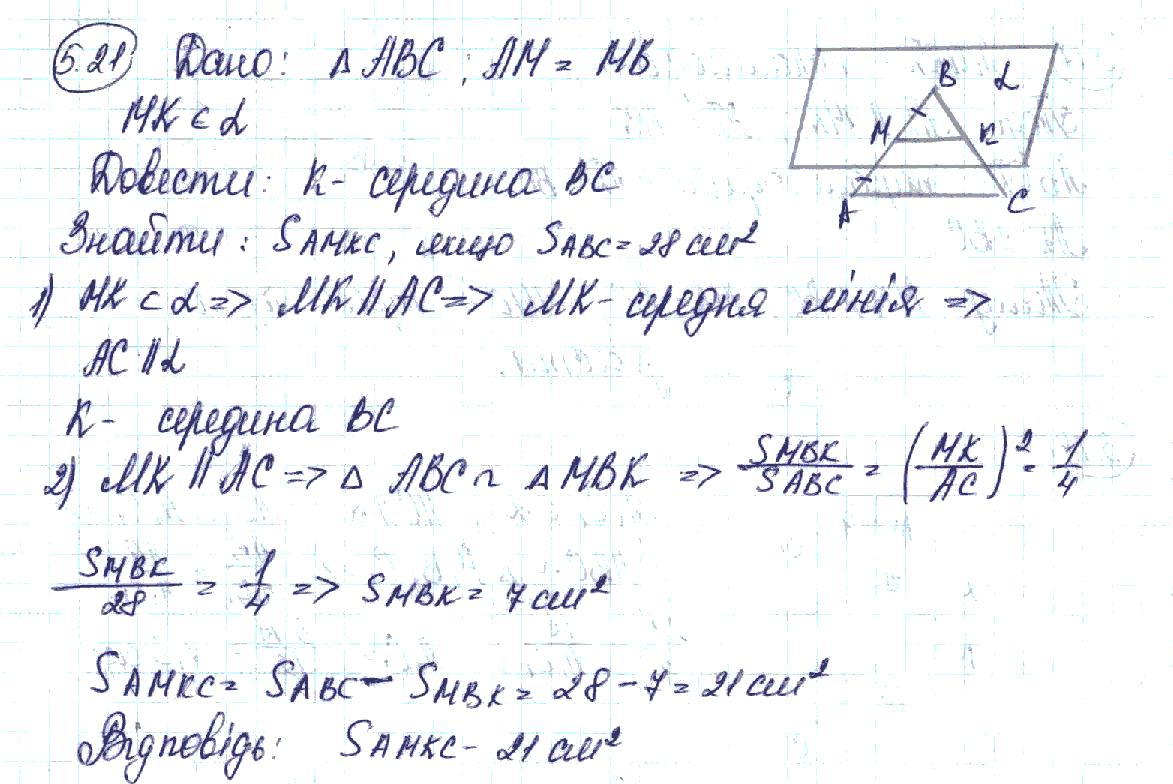 5.21 Дано: △ ABC, AM = MB
MK ⊂ α
Довести: K - середина BC
Знайти: SAMKC, якщо SABC = 28 см²
1) MK ⊂ α => MK || AC => MK - середня лінія =>
AC || α
K - середина BC
2) MK || AC => △ ABC ~ △ MBK => SMBK/SABC = (MK/AC)² = 1/4
SMBK/28 = 1/4 => SMBK = 7 см²
SAMKC = SABC - SMBK = 28 - 7 = 21 см²
Відповідь: SAMKC - 21 см²
B α
M K
A C